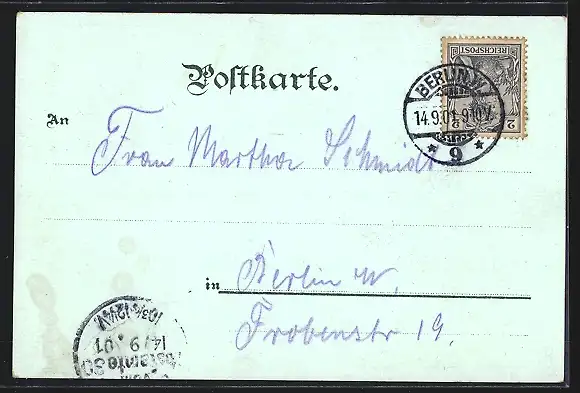 Postkarte.
REICHSPOST
2 2
BERLIN W.
14.9.01.9-10V.
* 9 *
An Frau Martha Schmidt
in Berlin W.
Frobenstr 19.
14/9.01